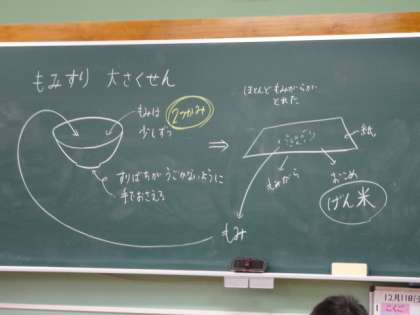 もみすり 大さくせん
もみは
少しずつ
2つかみ
すりばちが うごかないように
手でおさえる
ほとんど もみがらが
とれた
紙
もみがら
おこめ
げん米
もみ
12月11日
こくご